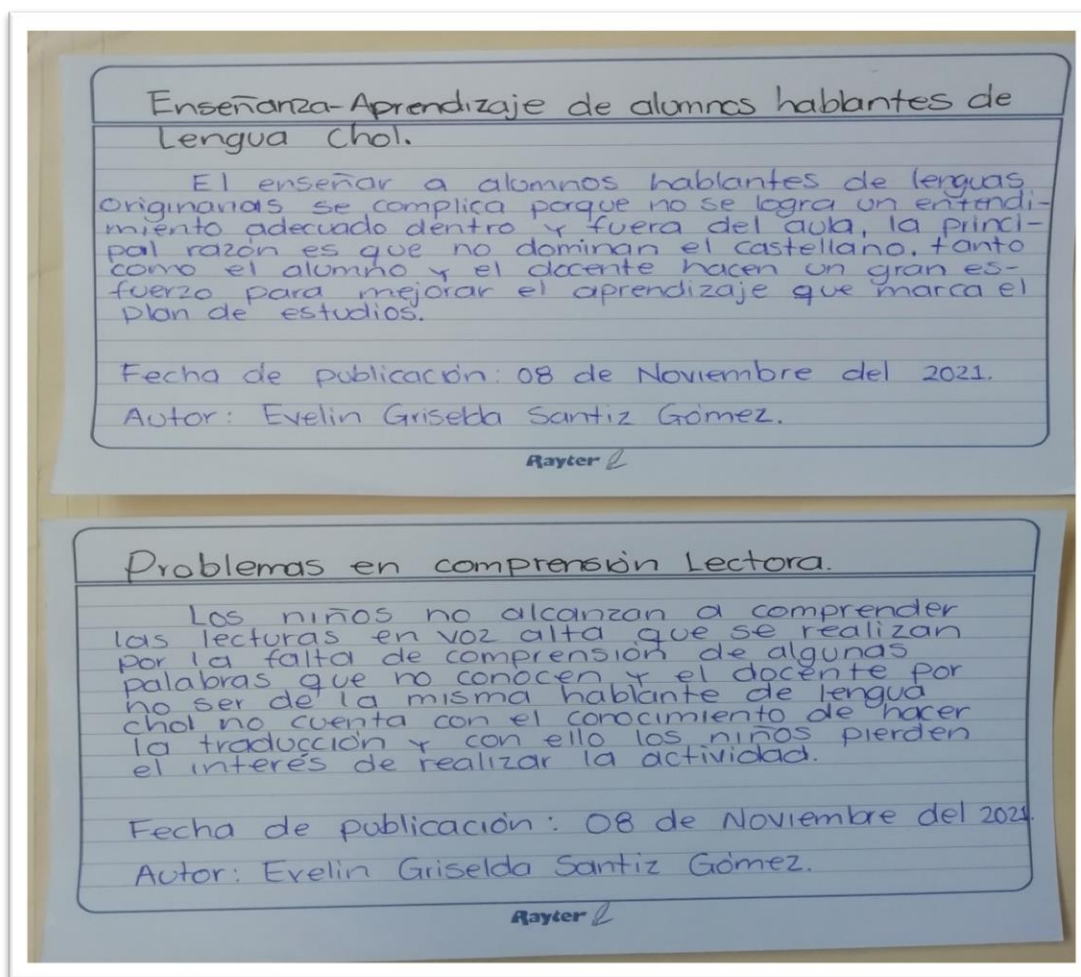 Enseñanza-Aprendizaje de alumnos hablantes de
Lengua Chol.
El enseñar a alumnos hablantes de lenguas
originarias se complica porque no se logra un entendi-
miento adecuado dentro y fuera del aula, la princi-
pal razón es que no dominan el castellano, tanto
como el alumno y el docente hacen un gran es-
fuerzo para mejorar el aprendizaje que marca el
plan de estudios.
Fecha de publicación: 08 de Noviembre del 2021.
Autor: Evelin Griselda Santiz Gómez.
Rayter
Problemas en comprensión Lectora.
Los niños no alcanzan a comprender
las lecturas en voz alta que se realizan
por la falta de comprensión de algunas
palabras que no conocen y el docente por
no ser de la misma hablante de lengua
chol no cuenta con el conocimiento de hacer
la traducción y con ello los niños pierden
el interés de realizar la actividad.
Fecha de publicación: 08 de Noviembre del 2021.
Autor: Evelin Griselda Santiz Gómez.
Rayter